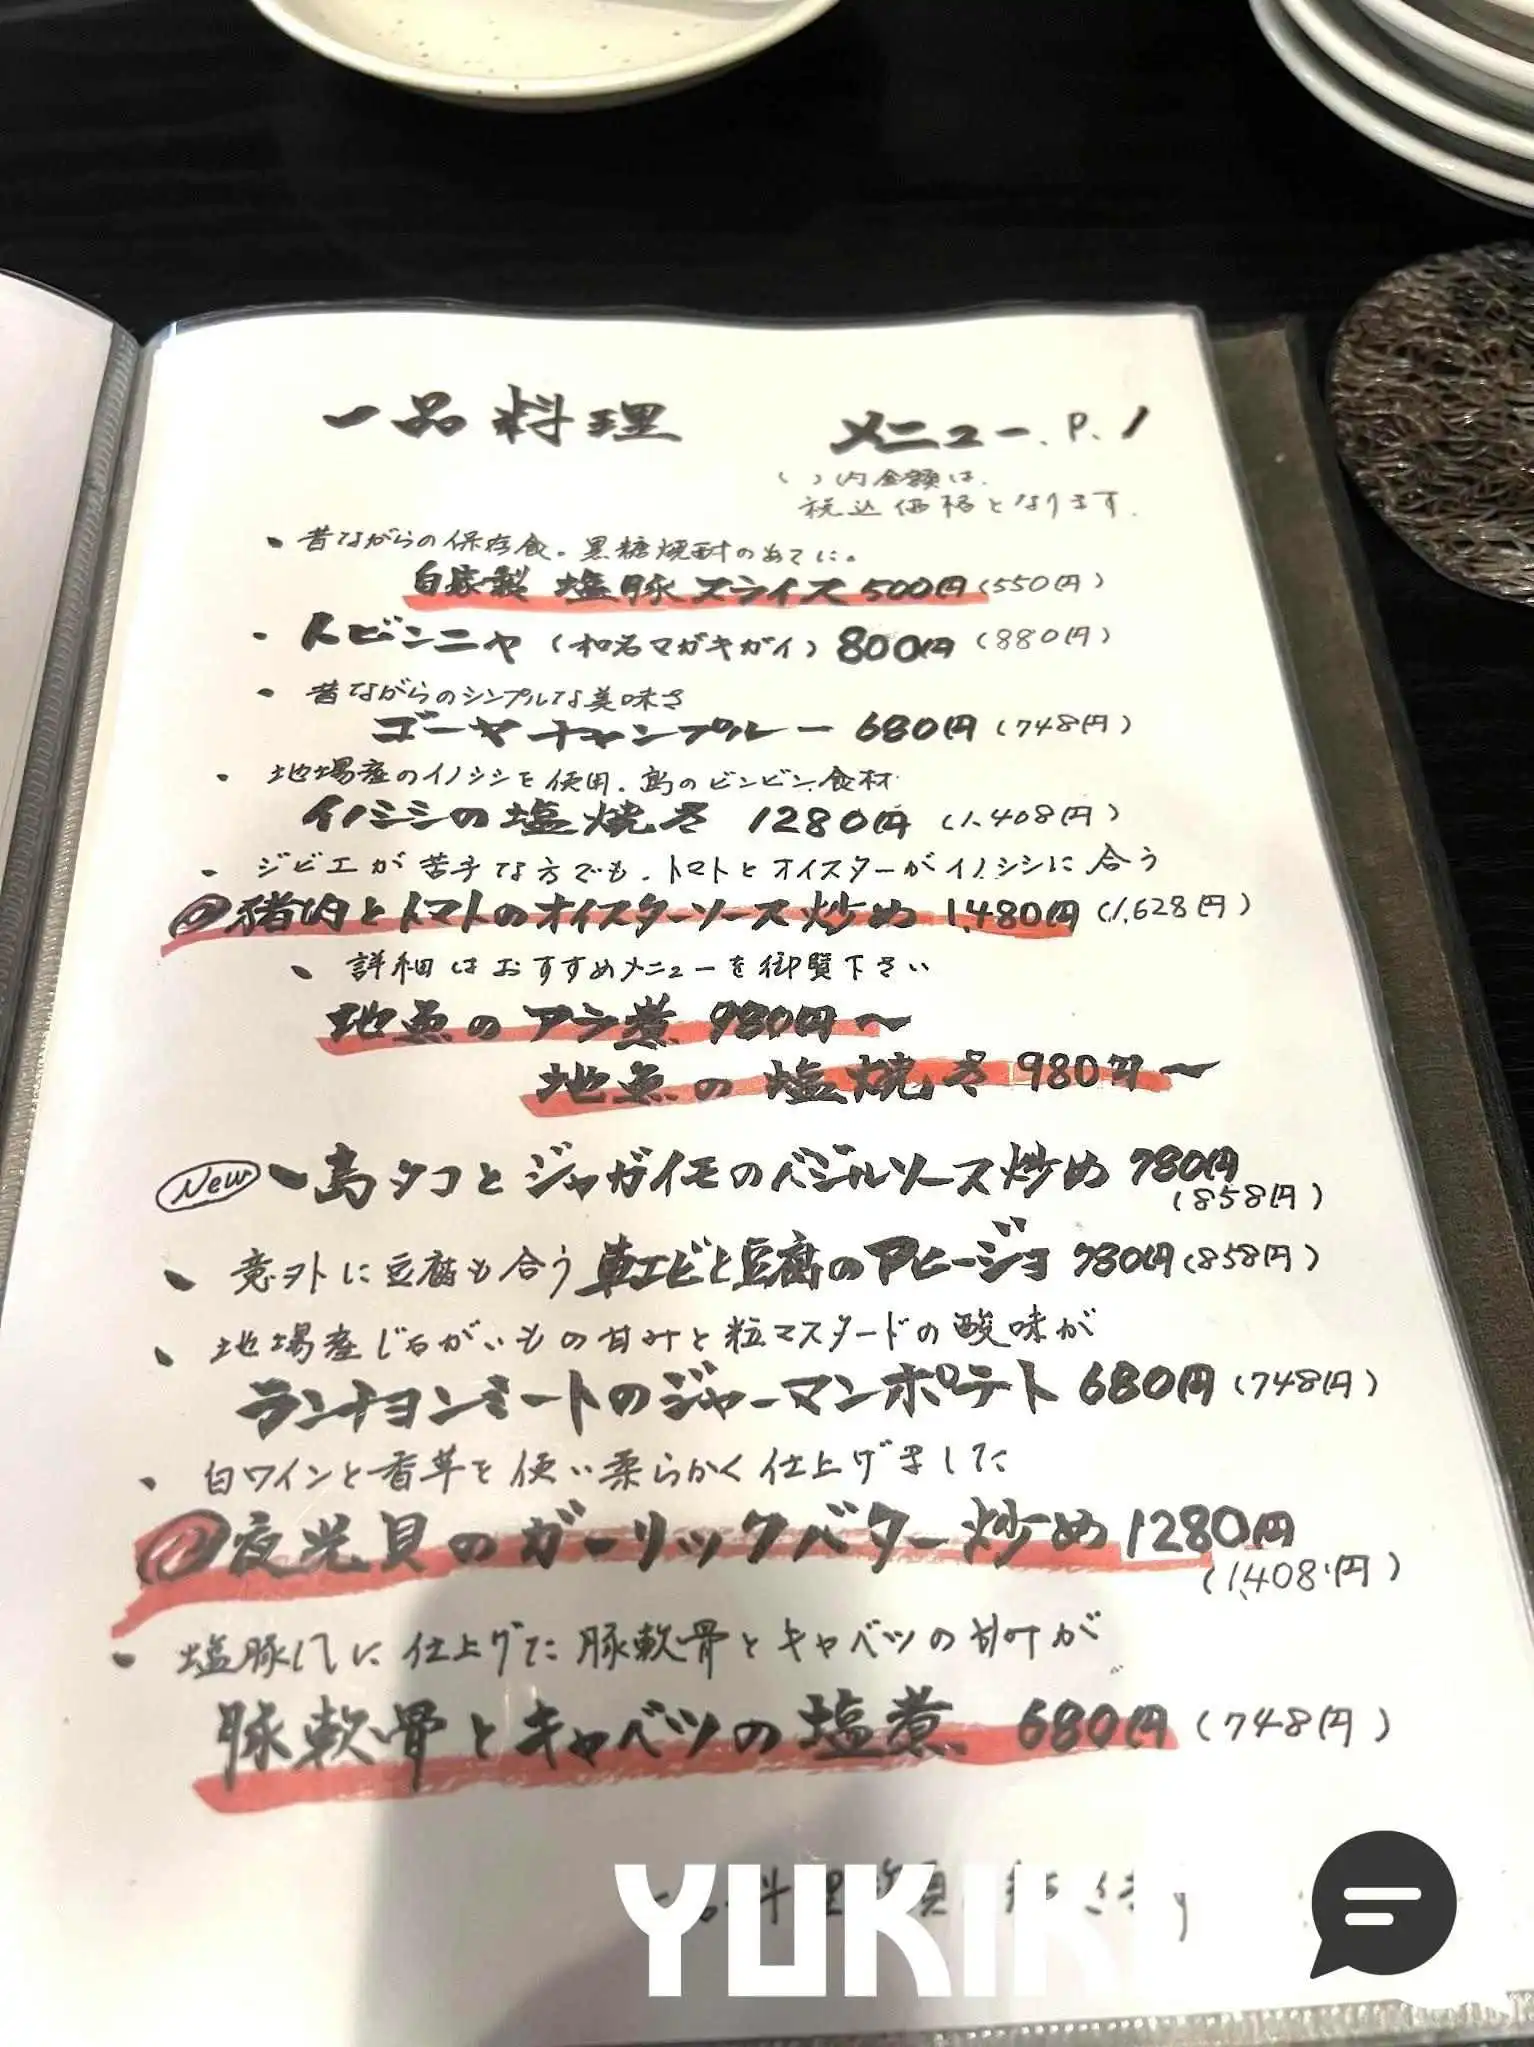 一品料理 メニュー. P. 1
( )内金額は.
税込価格となります.
・昔ながらの保存食。黒糖焼酎のあてに。
自家製 塩豚スライス 500円(550円)
・トビンニャ(和名マガキガイ)800円(880円)
・昔ながらのシンプルな美味さ
ゴーヤチャンプルー 680円(748円)
・地場産のイノシシを使用.島のビンビン食材
イノシシの塩焼き 1280円(1,408円)
・ジビエが苦手な方でも.トマトとオイスターがイノシシに合う
猪肉とトマトのオイスターソース炒め 1,480円(1,628円)
・詳細はおすすめメニューを御覧下さい
地魚のアラ煮 980円〜
地魚の塩焼き 980円〜
New ・島タコとジャガイモのバジルソース炒め 780円
(858円)
・意外に豆腐も合う 車エビと豆腐のアヒージョ 780円(858円)
・地場産じゃがいもの甘みと粒マスタードの酸味が
ランチョンミートのジャーマンポテト 680円(748円)
・白ワインと香草を使い柔らかく仕上げました
夜光貝のガーリックバター炒め 1280円
(1,408円)
・塩豚にして仕上げた豚軟骨とキャベツの甘みが
豚軟骨とキャベツの塩煮 680円(748円)
一品料理
YUKIK